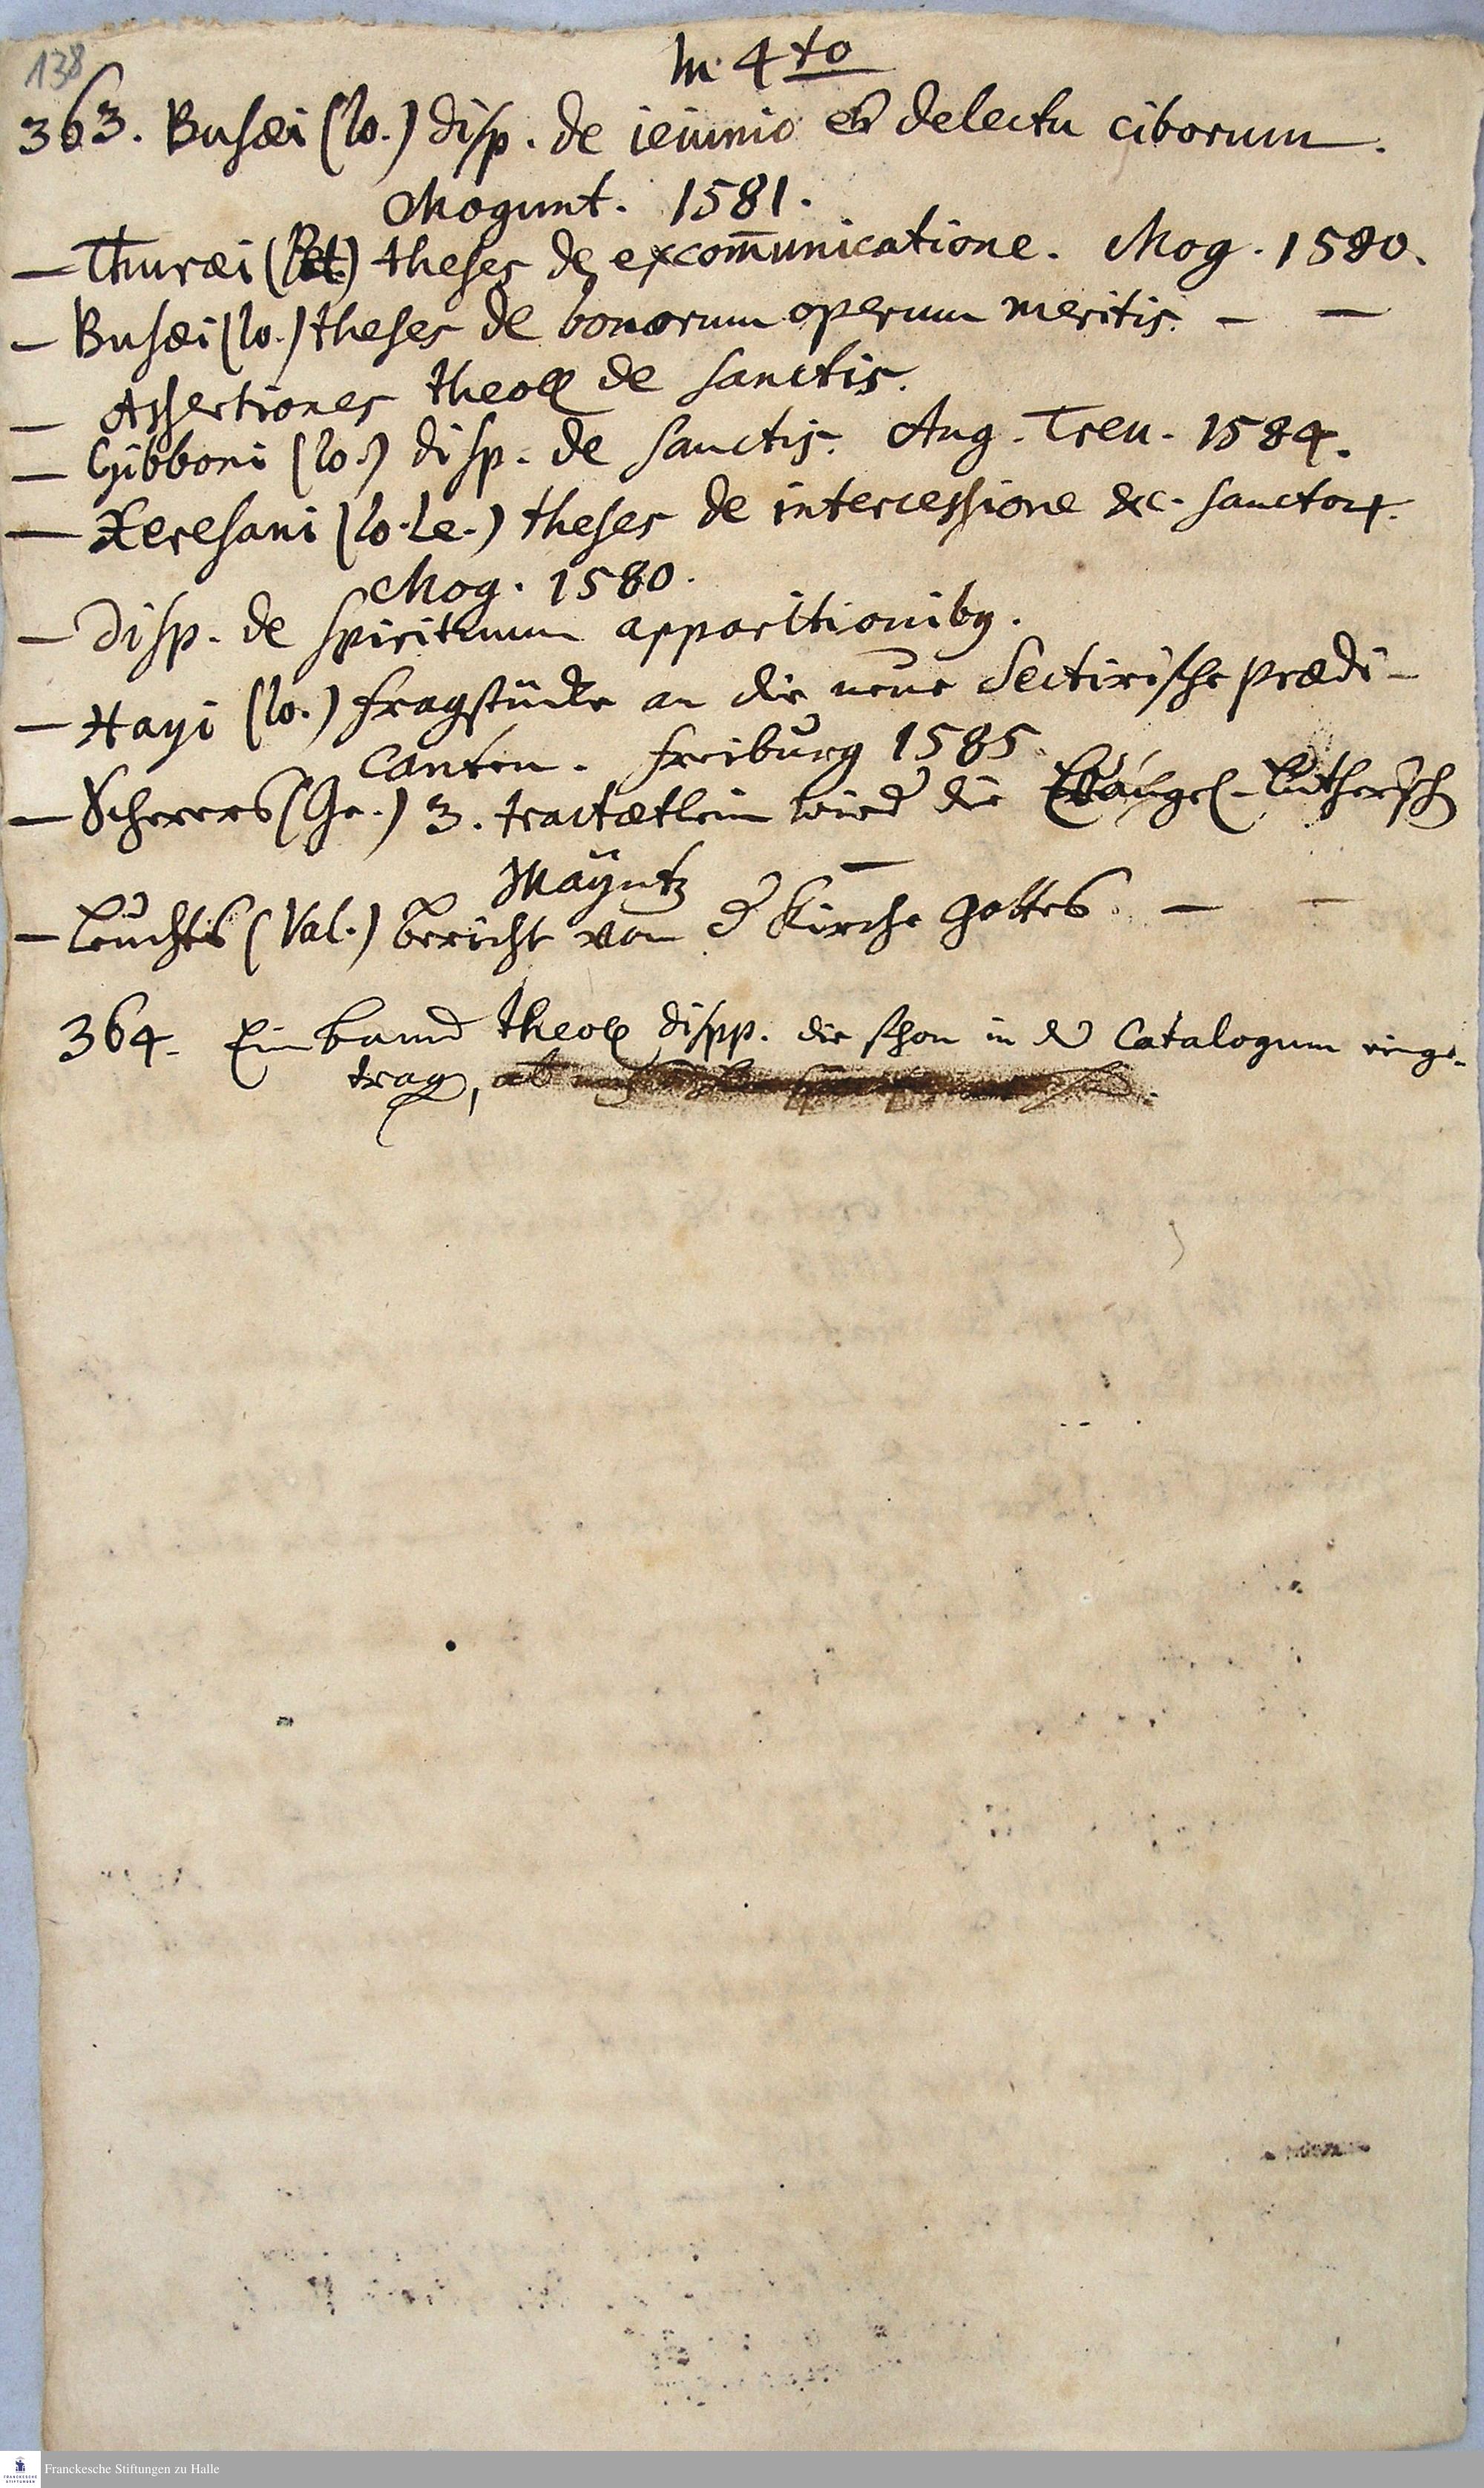 138
In 4to
363. Busæi (Io.) disp. de ieiunio et delectu ciborum.
Mogunt. 1581.
— Thuræi (Pet.) theses de excom̄unicatione. Mog. 1580.
— Busæi (Io.) theses de bonorum operum meritis. — —
— Assertiones theol. de sanctis.
— Gibboni (Io.) disp. de sanctis. Aug. Treu. 1584.
— Xeresani (Io. Le.) theses de intercessione &c. sanctor.
Mog. 1580.
— Disp. de spirituum apparitionibq.
— Hayi (Io.) fragstücke an die neue Sectirische prædi-
canten. Freiburg 1585
— Scherers (Ge.) 3. tractætlein wied die Evangel. Luthersch
Mäyntz —
— Leuchts (Val.) bericht von d Kirche Gottes. — —
364. Ein band theol. dispp. die schon in d Catalogum einge-
trag,
Franckesche Stiftungen zu Halle